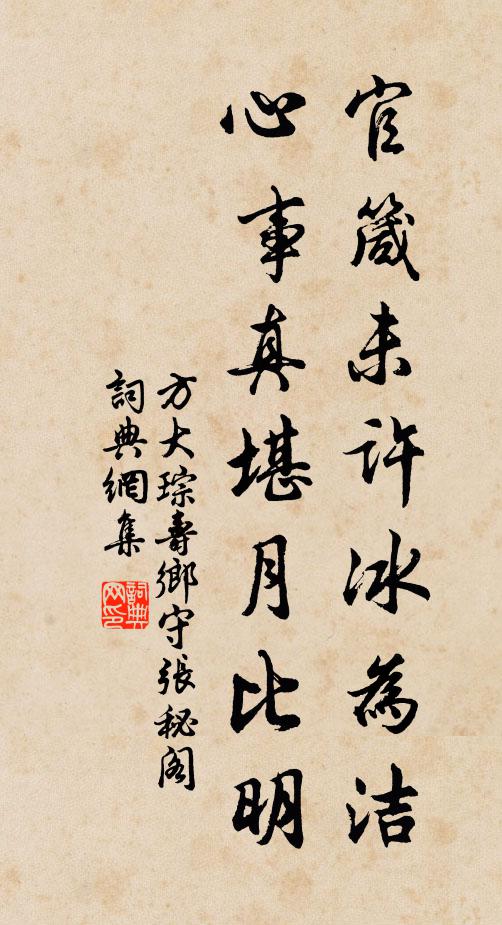 官箴未許冰為洁
心事真堪月比明
方大琮壽鄉守張秘阁
詞典網集
詞典
网印